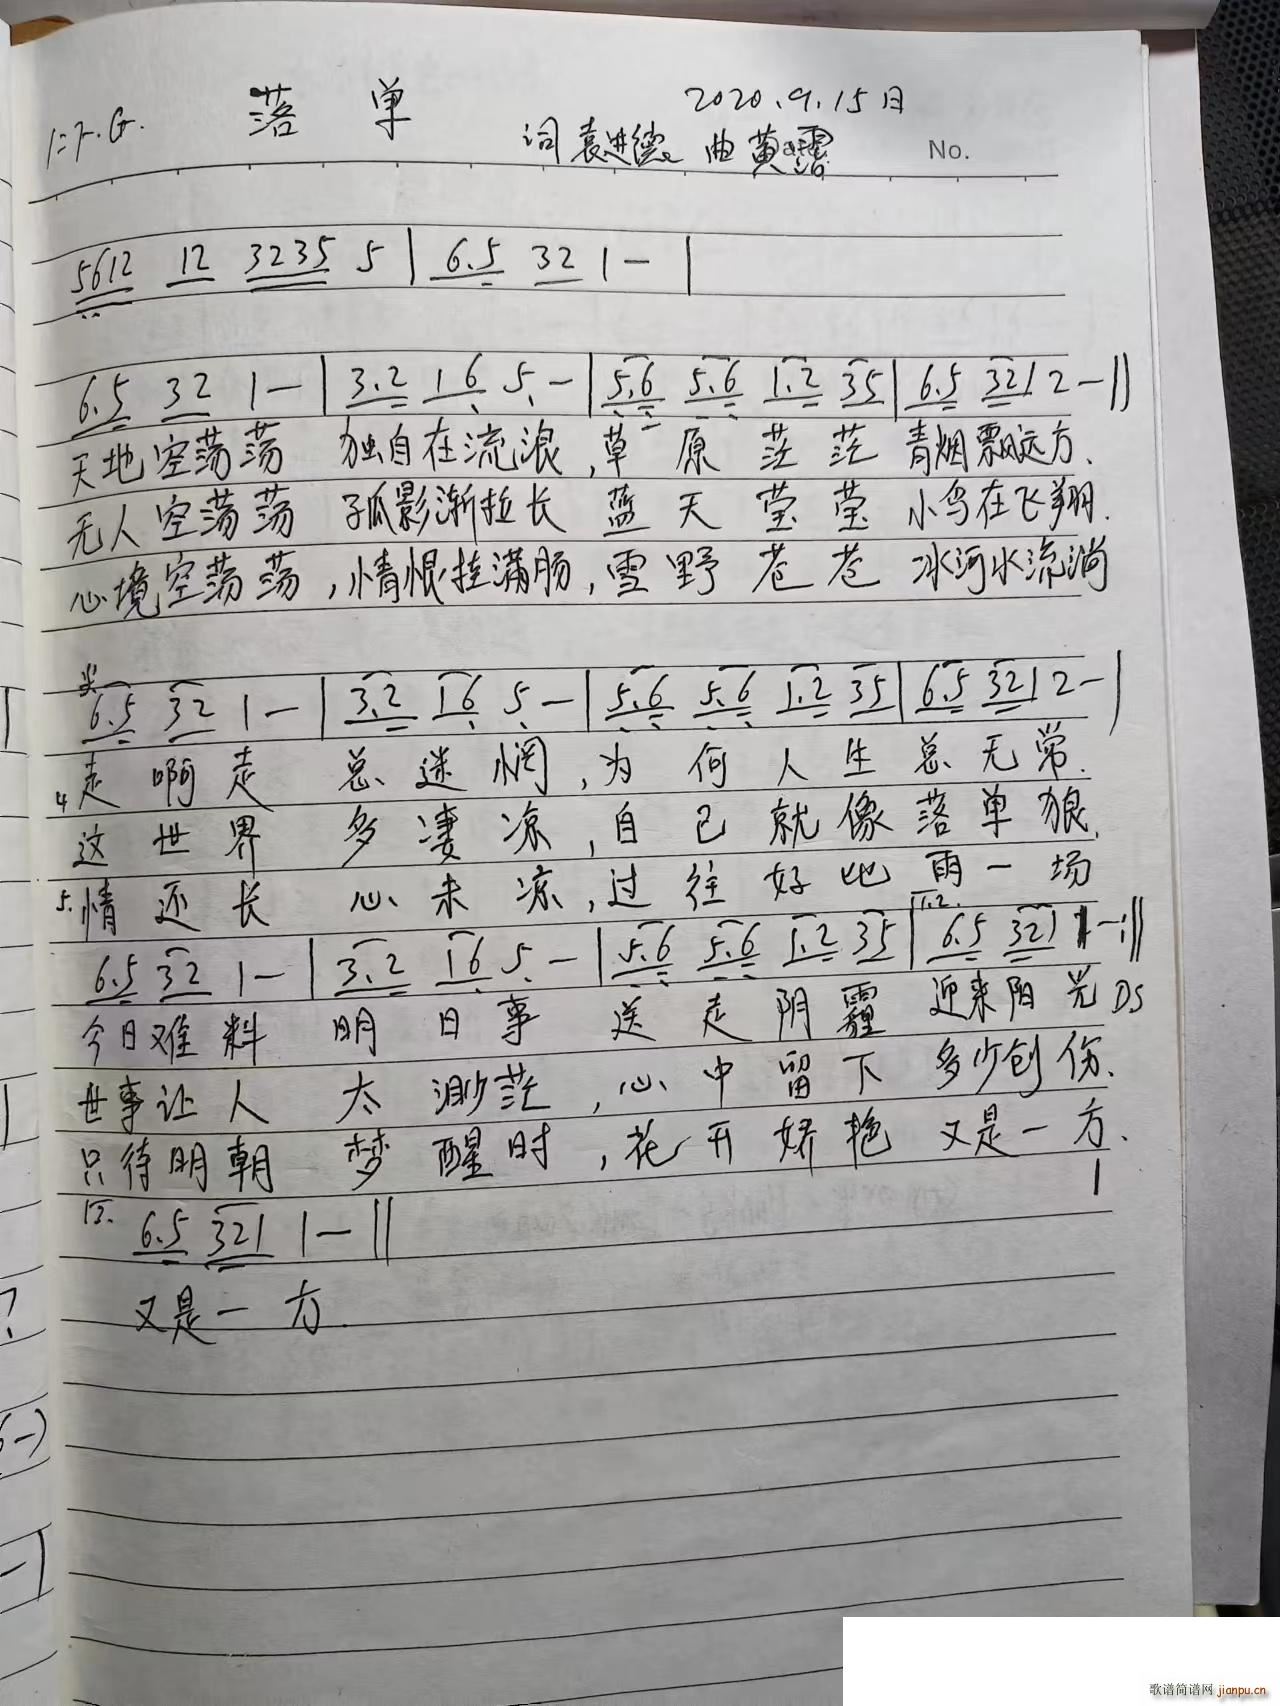 1=F.G. 落单 2020.9.15日
词袁进德 曲黄霑 No.
5612 12 3235 5 | 6.5 32 1 - |
6.5 32 1 - | 3.2 16 5 - | 5.6 5.6 1.2 35 | 6.5 321 2 - ||
天地空荡荡 独自在流浪,草原茫茫 青烟飘远方.
无人空荡荡 孑孤影渐拉长 蓝天莹莹 小鸟在飞翔.
心境空荡荡,情恨挂满肠,雪野苍苍 冰河水流淌
6.5 32 1 - | 3.2 16 5 - | 5.6 5.6 1.2 35 | 6.5 321 2 - |
4 走啊走 总迷惘,为何人生总无常.
这世界 多凄凉,自己就像落单狼.
5. 情还长 心未凉,过往好比雨一场
1.2.
6.5 32 1 - | 3.2 16 5 - | 5.6 5.6 1.2 35 | 6.5 321 1 - :||
今日难料 明日事 送走阴霾 迎来阳光 DS
世事让人 太渺茫,心中留下 多少创伤.
只待明朝 梦醒时,花开娇艳 又是一方.
6.5 321 1 - ||
又是一方.
歌谱简谱网 jianpu.cn